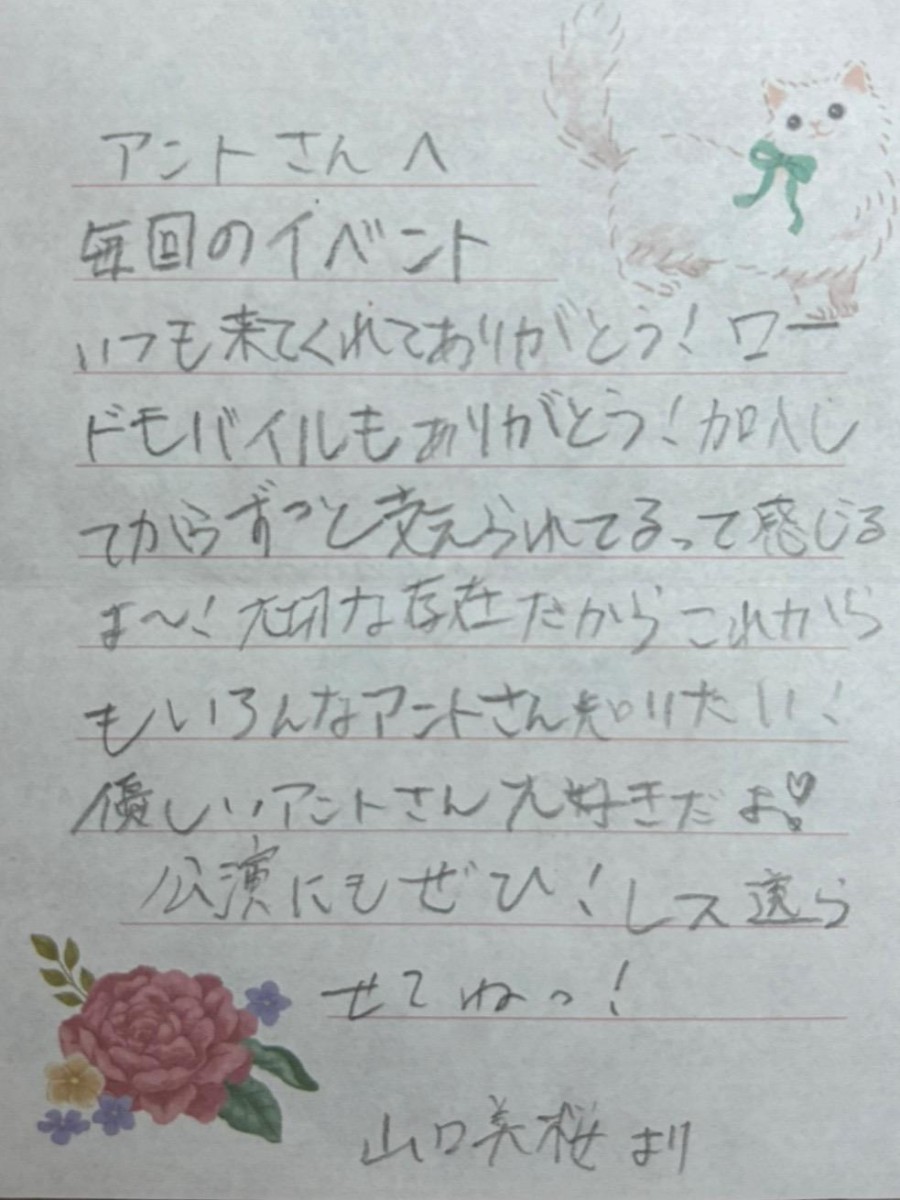 アントさんへ
毎回のイベント
いつも来てくれてありがとう！ワー
ドモバイルもありがとう！加入し
てからずっと支えられてるって感じる
よ〜！大切な存在だからこれから
もいろんなアントさん知りたい！
優しいアントさん大好きだよ♡
公演にもぜひ！レス送ら
せてねっ！
山口美桜より